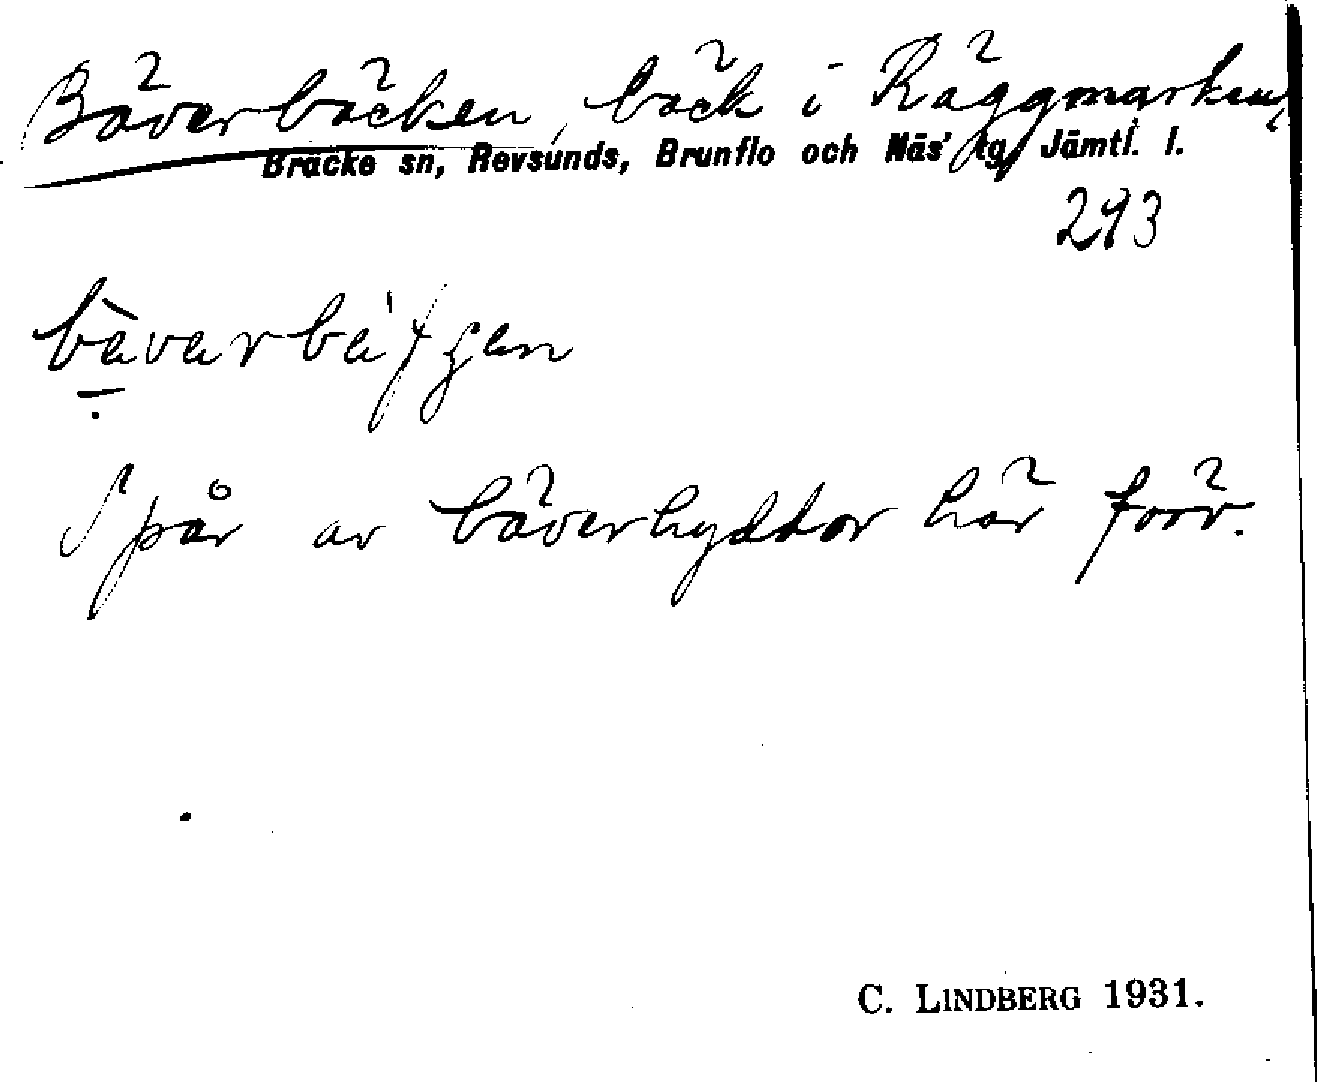 Bäverbäcken, bäck i Räggmarken,
Bräcke sn, Revsunds, Brunflo och Näs' tg, Jämtl. l.
293
Spår av bäverhyddor här förr.
C. LINDBERG 1931.